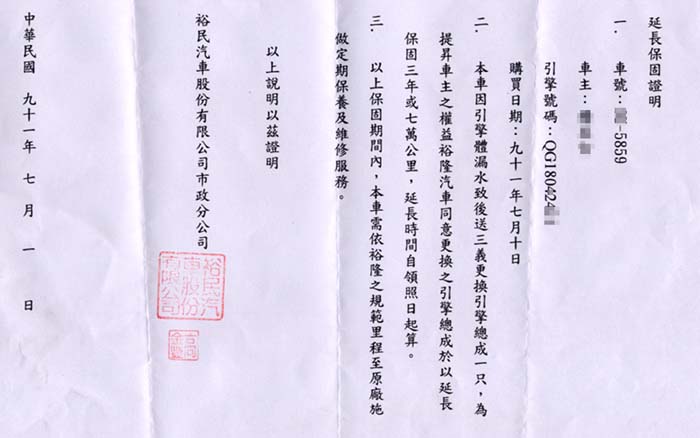 延長保固證明
一. 車號：-5859
車主：
引擎號碼：QG180424
購買日期：九十一年七月十日
二. 本車因引擎體漏水致後送三義更換引擎總成一只，為
提昇車主之權益裕隆汽車同意更換之引擎總成於以延長
保固三年或七萬公里，延長時間自領照日起算。
三. 以上保固期間內，本車需依裕隆之規範里程至原廠施
做定期保養及維修服務。
以上說明以茲證明
裕民汽車股份有限公司市政分公司
裕民汽
車股份
有限公司
中華民國 九十一年 七 月 一 日